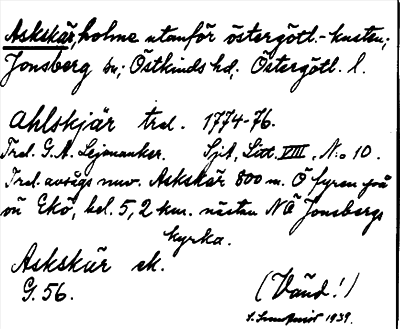 Askskär, holme utanför östergötl.-kusten;
Jonsberg sn; Östkinds hd; Östergötl. l.
Ahlskjär trol. 1774-76.
Trol. G. A. Lejonanker. Sjk, Litt. VIII, No 10.
Trol. avsågs nuv. Askskär 800 m. Ö fyren på
ön Ekö, bel. 5,2 km. nästan NÖ Jonsbergs
kyrka.
Askskär ek.
G. 56.
(Vänd!)
1939.